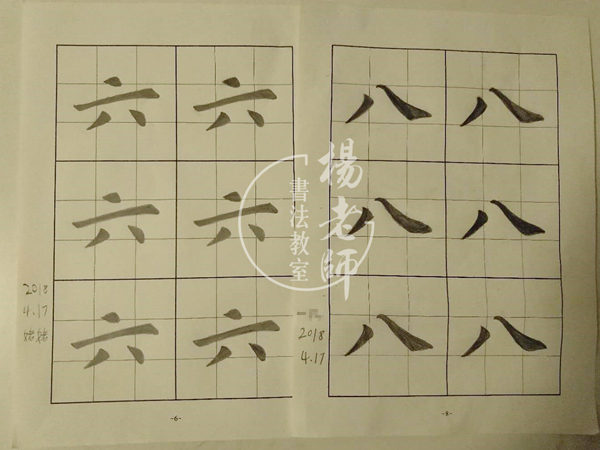 六 六
六 六
六 六
2018
4.17
-6-
八 八
八 八
八 八
2018
4.17
-8-
楊老師
書法教室